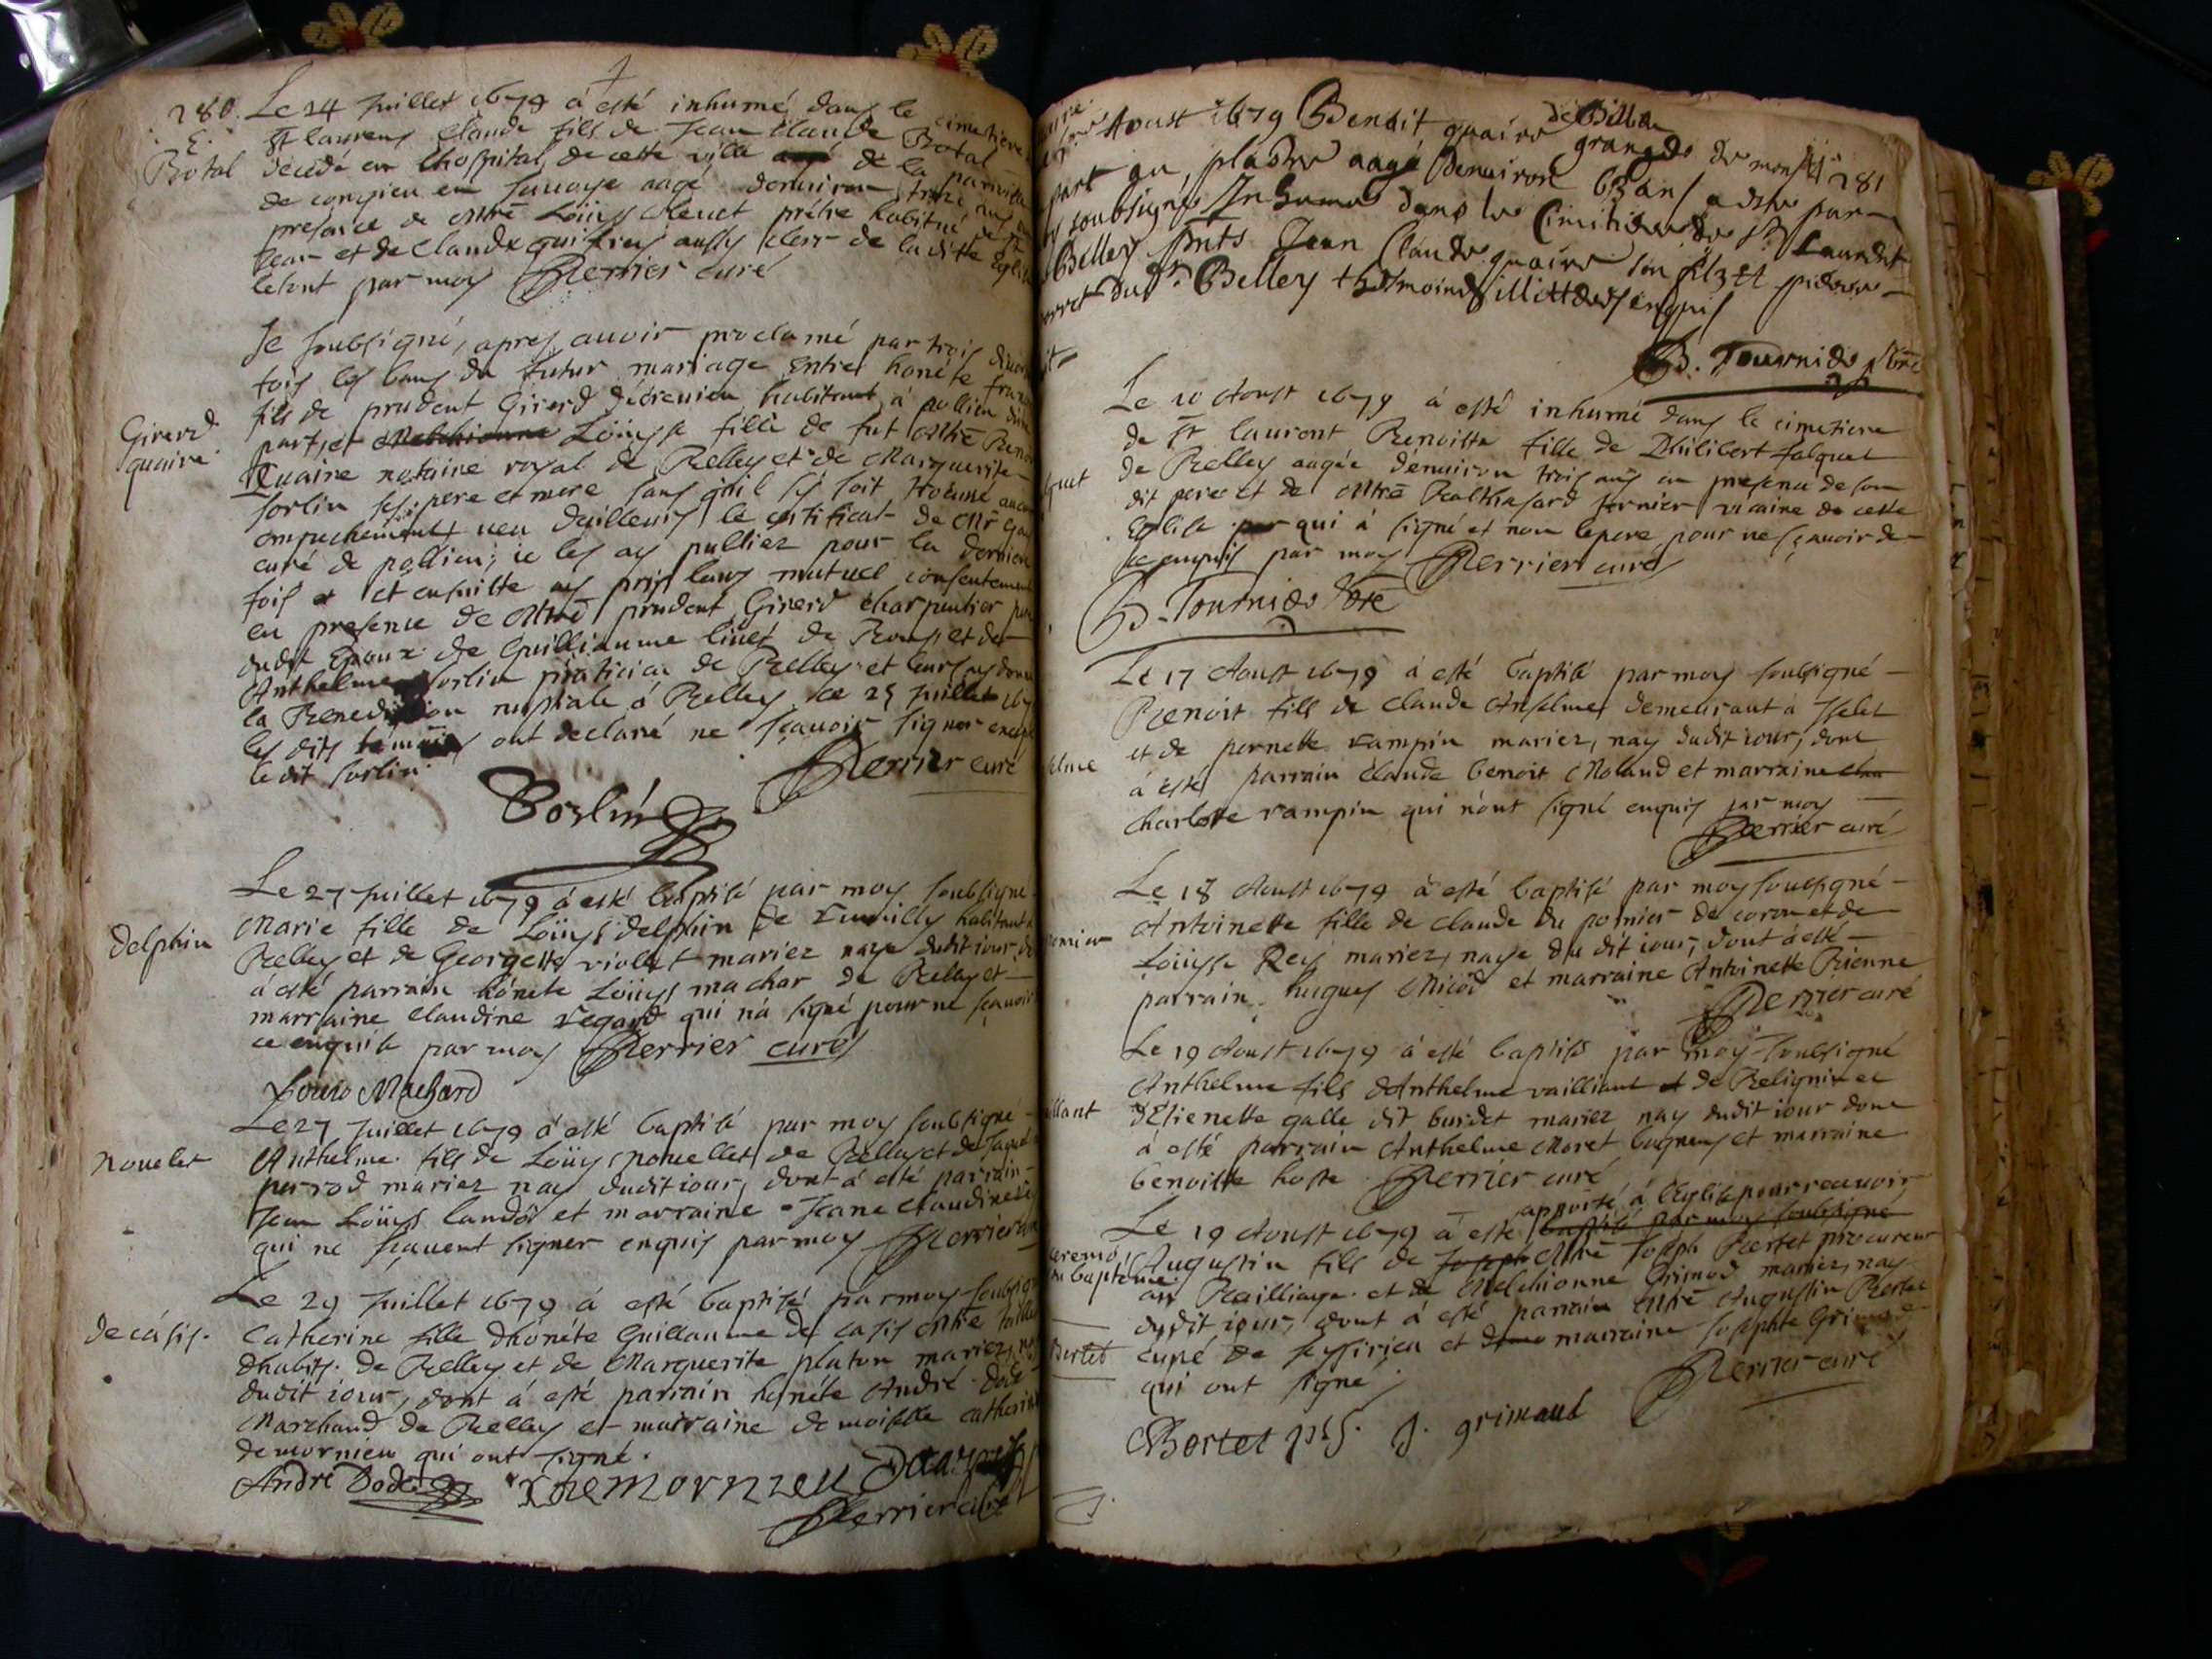 280. Le 24 Juillet 1679 à esté inhumé dans le cimetiere
E. St laurens Claude fils de Jean Claude Botal
Botal decedé en Lhospital de cette ville de la parroisse
de conzieu en sauoye aagé denuiron treize ans en
presence de Mtre Loüys Cleuet prétre habitué de St
Jean et de Claude aussy clerc de laditte Eglise
le tout par moy Perrier curé
Je soubsigné, apres auoir proclamé par trois diuerses
fois les bans du futur mariage entre honéte
fils de prudent Girerd habitant à pollieu dune
Girerd
quaire.
part, et Melchionne Loüyse fille de fut Mtre Benoit
Quaire notaire royal de Belley et de Marguerite
sorlin ses pere et mere sans qu'il s'y soit trouué aucun
empechement, ueu dailleurs le certificat de Mr
curé de pollieu, ie les ay publiez pour la derniere
fois et ensuitte ay pris leurs mutuel consentement
en presence de Mtre prudent Girerd charpentier pere
dudit Epoux de Guilliaume liuet de et de
Anthelme Sorlin praticien de Belley et leur ay donné
la Benediction nuptiale à Belley ce 25 Juillet 1679
les dits temoins ont declaré ne sçauoir signer excepté
le dit sorlin.
Perrier curé
Sorlin
Le 27 Juillet 1679 à esté baptisé par moy soubsigné
Marie fille de Loüys delphin de rumilly habitant à
delphin
Belley et de Georgette violet mariez naye dudit iour, dont
à esté parrain honéte Loüys machar de Belley et
marraine Claudine regard qui n'à signé pour ne sçauoir
ce enquise par moy Perrier curé
Louis Machard
Le 27 Juillet 1679 à esté baptisé par moy soubsigné
nouelet
Anthelme fils de Loüys nouellet de Belley et de Jaqueme
perrod mariez nay dudit iour, dont à esté parrain
Jean Loüys landoz et marraine Jeane Claudine
qui ne sçauent signer enquis par moy Perrier curé
Le 29 Juillet 1679 à esté baptisé par moy soubsigné
decásis.
Catherine fille dhonéte Guillaume de casis Mtre tailleur
dhabits de Belley et de Marguerite platon mariez, naye
dudit iour, dont à esté parrain honéte André dode
Marchand de Belley et marraine demoiselle Catherine
de mornieu qui ont signé.
André Dode Demornieu
Perrier curé
Aoust 1679 Benoit quaire de Billieu
grangé de monsr 281
aagé denuiron 63 ans adue par
soubsigné Inhumé dans le Cimitiere de St Laurent
Belley pnts Jean Claude quaire son filz et pierre
du dt Belley thesmoings illitteres enquis
B. Tournide pbre
Le 10 Aoust 1679 à esté inhumé dans le cimetiere
de St laurent Benoitte fille de Philibert falquet
de Belley aagée dénuiron trois ans en presence de son
dit pere et de Mtre Balthasard fornier vicaire de cette
Eglise qui à signé et non le pere pour ne sçauoir de
ce enquis par moy Perrier curé
B. Tournide pbre
Le 17 Aoust 1679 à esté baptisé par moy soubsigné
Benoit fils de Claude Anselme demeurant à Iselet
et de pernette rampin mariez, nay dudit iour, dont
à esté parrain Claude benoit Moland et marraine
Charlotte rampin qui n'ont signé enquis par moy
Perrier curé
Le 18 Aoust 1679 à esté baptisé par moy soubsigné
Antoinette fille de Claude du pomier de coron et de
Loüyse Rey mariez, naye du dit iour, dont à esté
parrain hugues Micod et marraine Antoinette Bienne
Perrier curé
Le 19 Aoust 1679 à esté baptisé par moy soubsigné
Anthelme fils dAnthelme vailliant et de Beligni et
dEtienette galle dit burdet mariez nay dudit iour dont
à esté parrain Anthelme Moret et marraine
benoitte hoste Perrier curé
Le 19 Aoust 1679 à esté apporté à lEglise pour receuoir
baptisé par moy soubsigné
ceremo.
du baptéme.
Augustin fils de Joseph Mtre Joseph Bertet procureur
au Bailliage et de Melchionne Grimod mariez, nay
dudit iour, dont à esté parrain Mtre Augustin Bertet
Bertet
curé de seyssirieu et marraine Josephte Grimod
qui ont signé
Perrier curé
Bertet ptr. J. grimaud